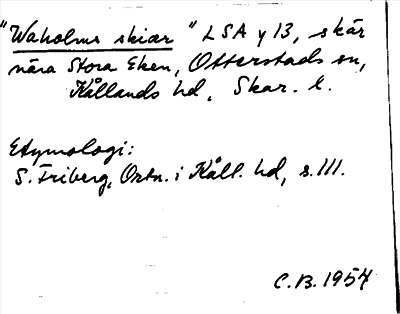 "Waholms skiær" LSA y 13, skär
nära Stora Eken, Otterstads sn,
Kållands hd, Skar. l.
Etymologi:
S. Friberg, Ortn. i Kåll. hd, s. 111.
C.B. 1957